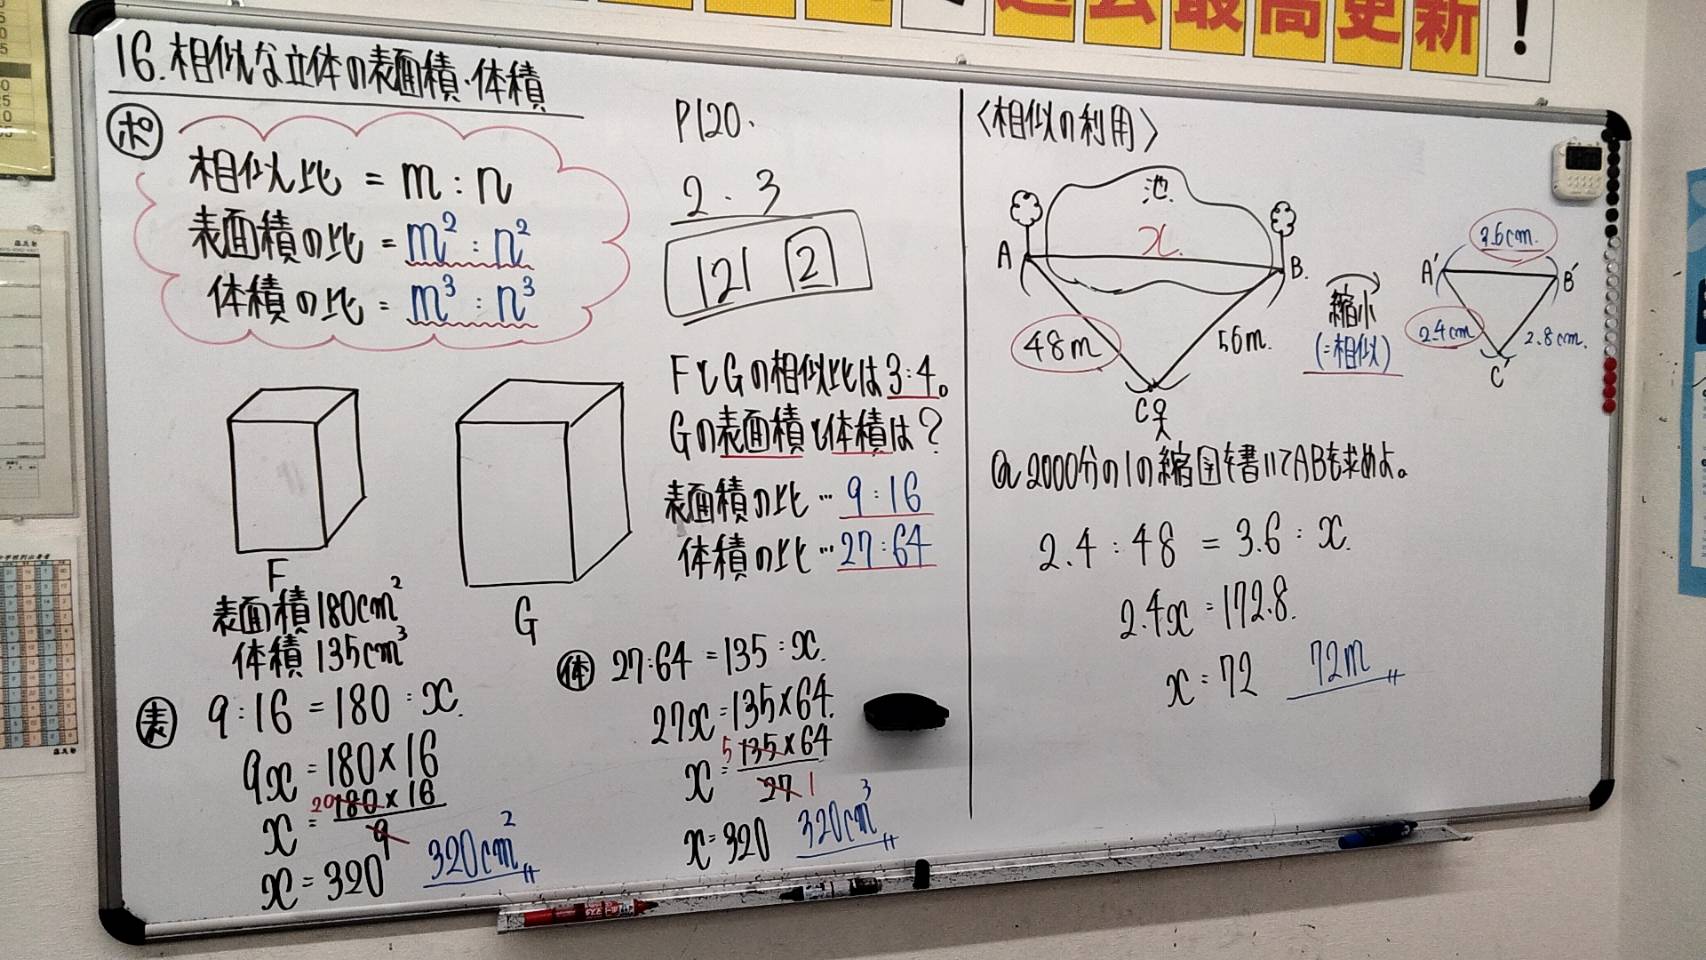 過去最高更新！
16.相似な立体の表面積・体積
ポ
相似比 = m : n
表面積の比 = m² : n²
体積の比 = m³ : n³
P120.
2.3
121 2
F
表面積 180cm²
体積 135cm³
G
FとGの相似比は3:4。
Gの表面積と体積は？
表面積の比…9:16
体積の比…27:64
表 9:16 = 180 : x.
9x = 180×16
x = 180×16/9
20
1
x = 320 320cm²
体 27:64 = 135 : x.
27x = 135×64.
x = 135×64/27
5
1
x = 320 320cm³
〈相似の利用〉
池
x
A
B.
48m
56m.
C
縮小
(=相似)
3.6cm.
A'
B'
2.4cm
2.8cm.
C'
Q.2000分の1の縮図を書いてABを求めよ。
2.4 : 48 = 3.6 : x.
2.4x = 172.8.
x = 72 72m